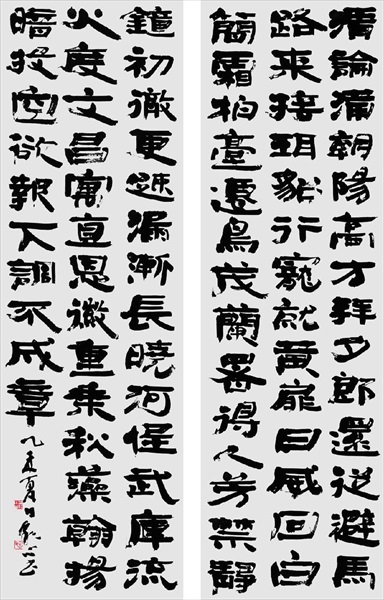 清論滿朝陽高才拜夕郎還從避馬
路來接珥貂行寵就黃扉日威回白
簡霜柏臺遷鳥茂蘭署得人芳禁靜
鐘初徹更疎漏漸長曉河低武庫流
火度文昌寓直恩徽重乘秋藻翰揚
暗投空欲報下調不成章